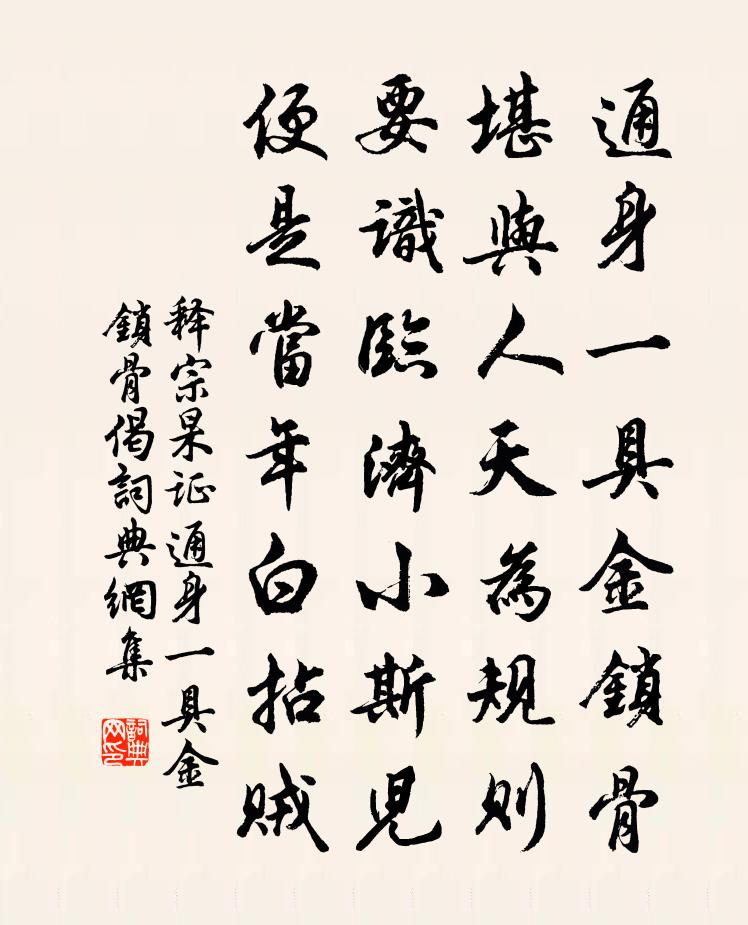 通身一具金鎖骨
堪與人天為規則
要識臨濟小斯児
便是當年白拈賊
释宗杲证通身一具金
鎖骨偈詞典網集
詞典
网印